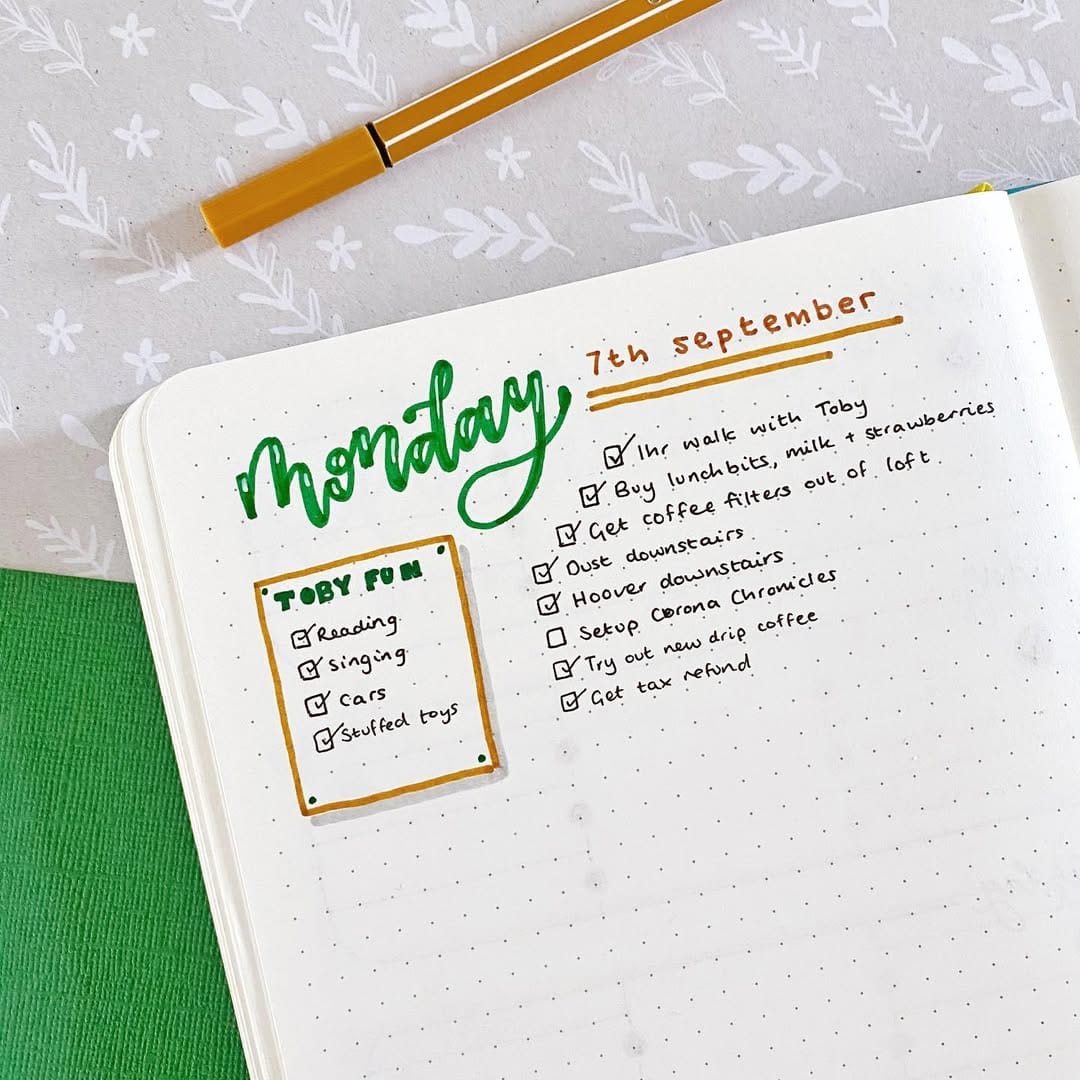 Monday
7th september
1hr walk with Toby
Buy lunch bits, milk + strawberries
Get coffee filters out of loft
Dust downstairs
Hoover downstairs
Setup Corona Chronicles
Try out new drip coffee
Get tax refund
TOBY FUN
Reading
Singing
Cars
Stuffed toys